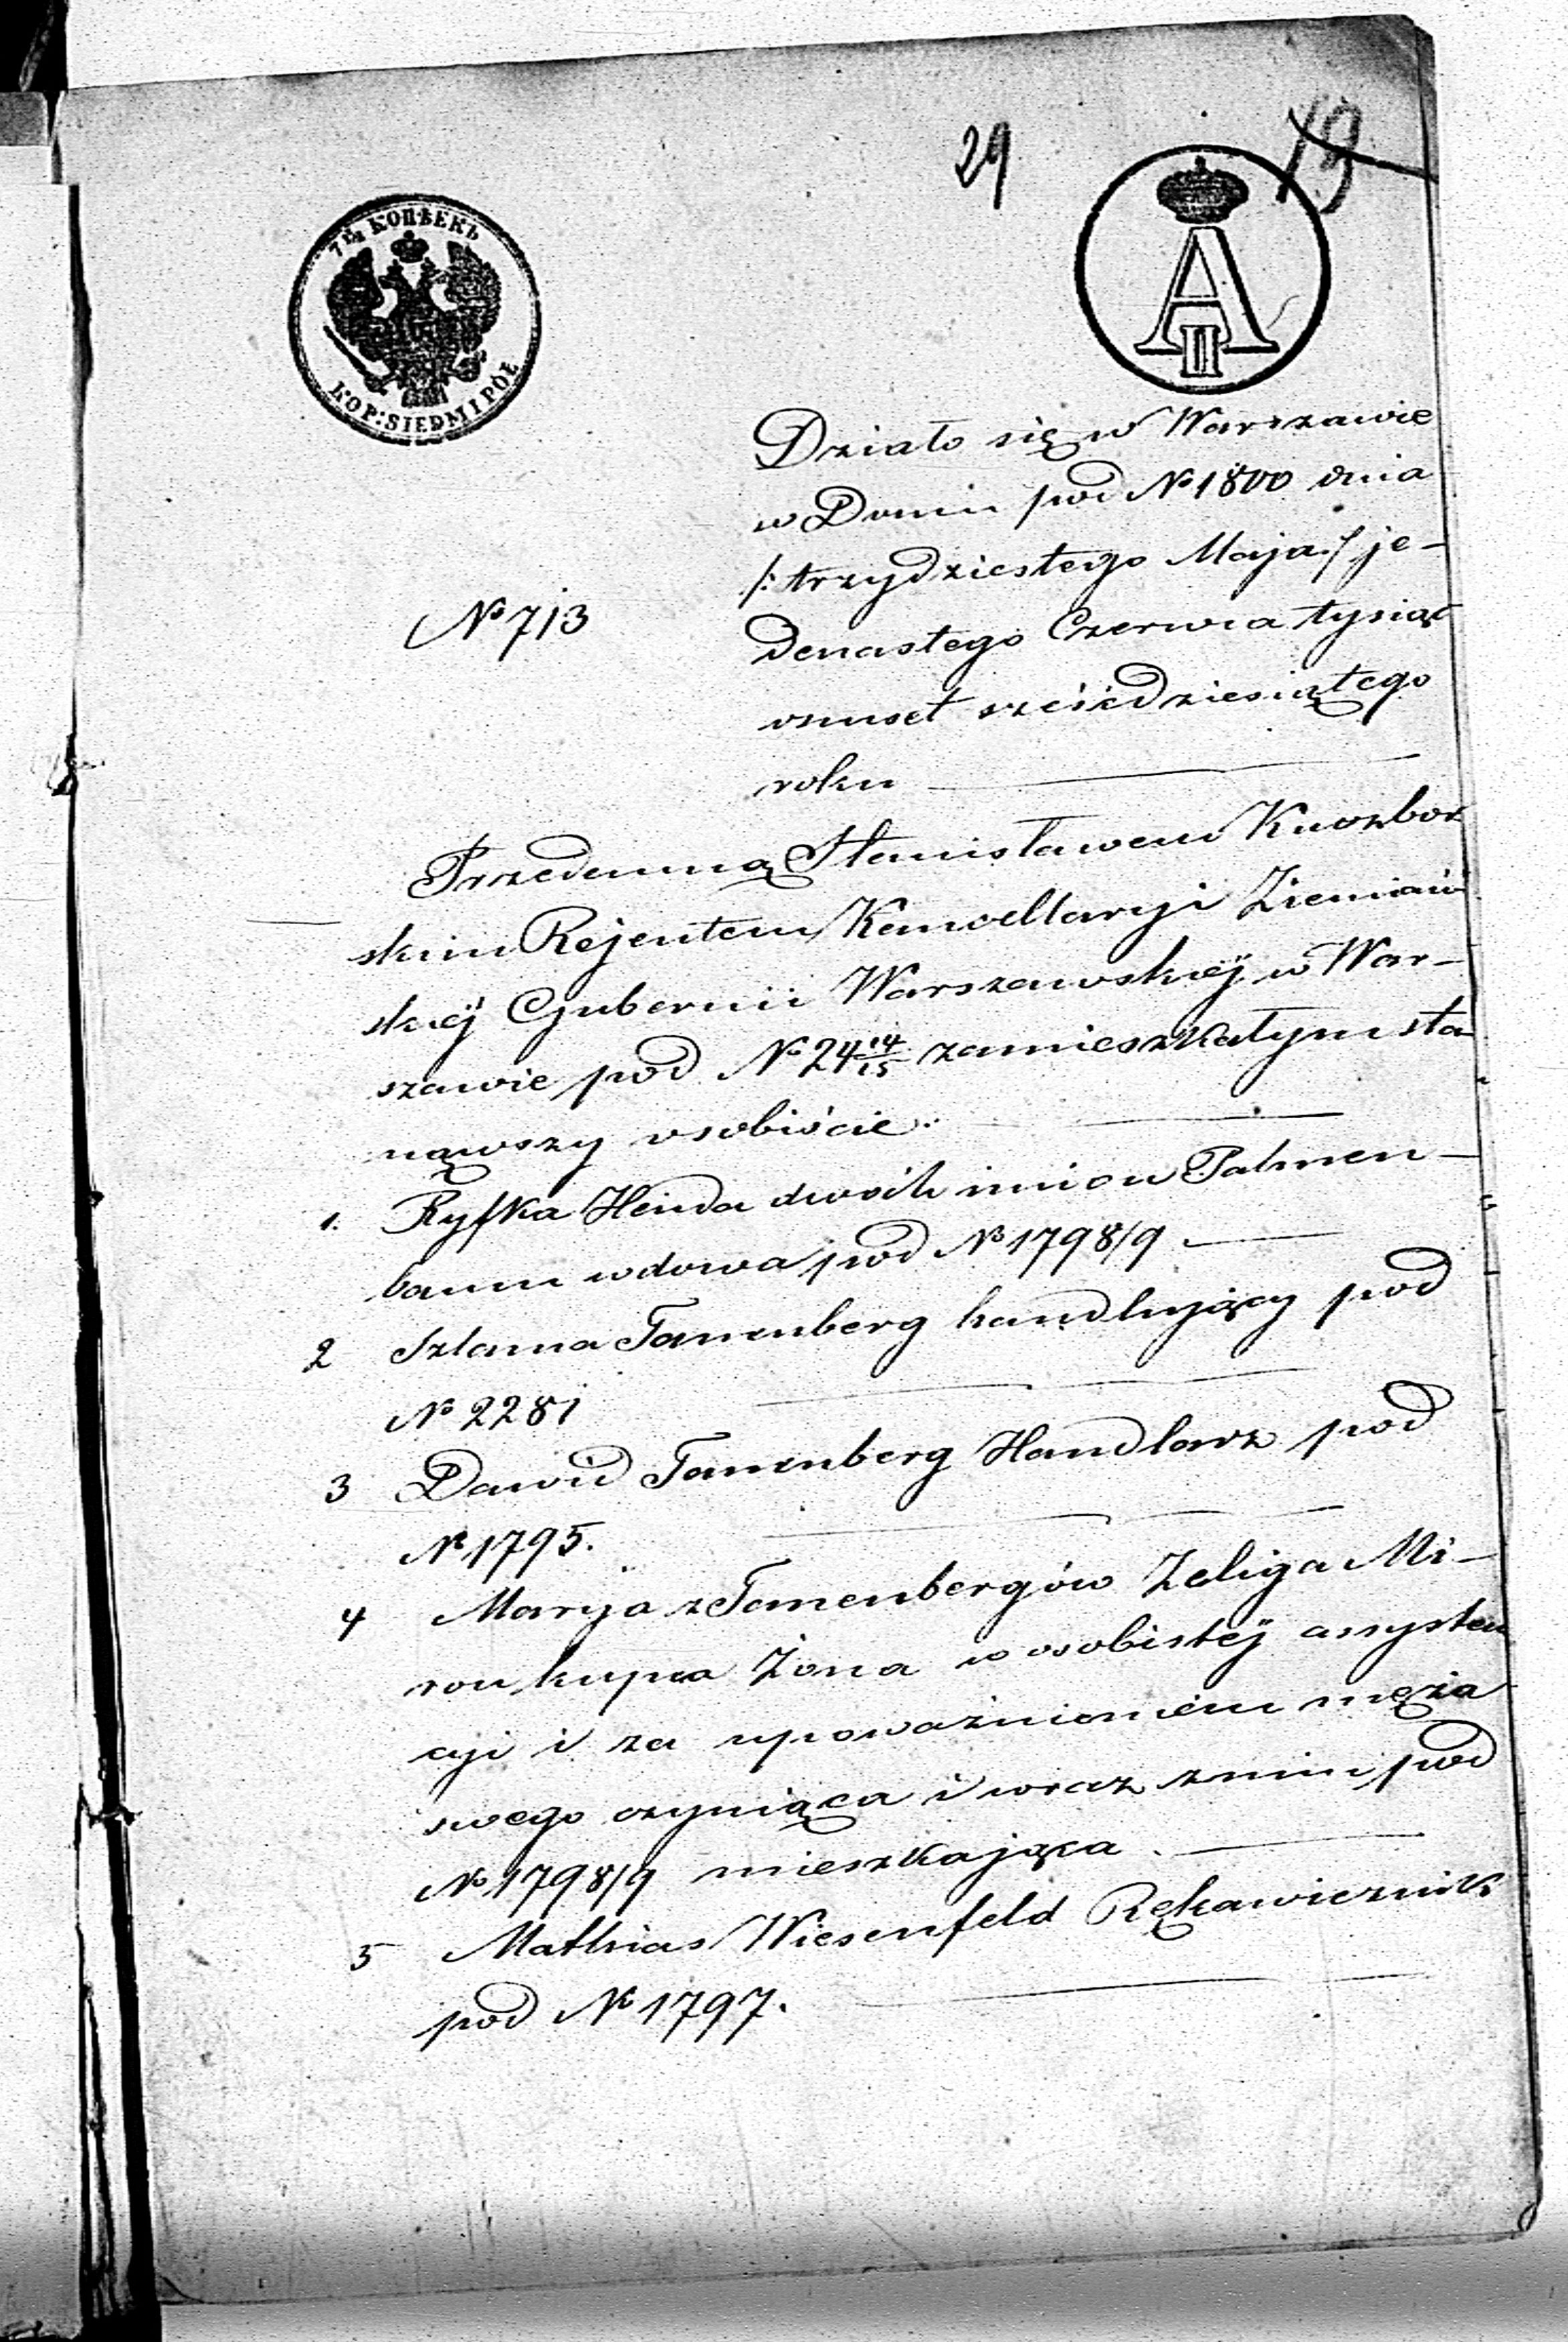 29
19
7½ КОПѢЕКЪ
KOP: SIEDM I PÓŁ
A II
Działo się w Warszawie
w Domu pod No 1800 dnia
/: trzydziestego Maja :/ je-
denastego Czerwca tysiąc
osmset sześćdziesiątego
roku
No 713
Przedemną Stanisławem Kuczbor
skim Rejentem Kancellaryi Ziemiań
skiéj Gubernii Warszawskiéj w War-
szawie pod No 24 14/15 zamieszkałym sta
nąwszy osobiście.
1. Ryfka Henda dwóch imion Palmen-
baum wdowa pod No 1798/9
2 Szlama Tanenberg handlujący pod
No 2281
3 Dawid Tanenberg Handlarz pod
No 1795.
4 Maryja z Tanenbergów Zeliga Mi-
ron kupca Żona w osobistéj assysten
cyi i za upoważnieniem męża
swego czyniąca i wraz z nim pod
No 1798/9 mieszkająca
5 Mathias Wiesenfeld Rękawicznik
pod No 1797.